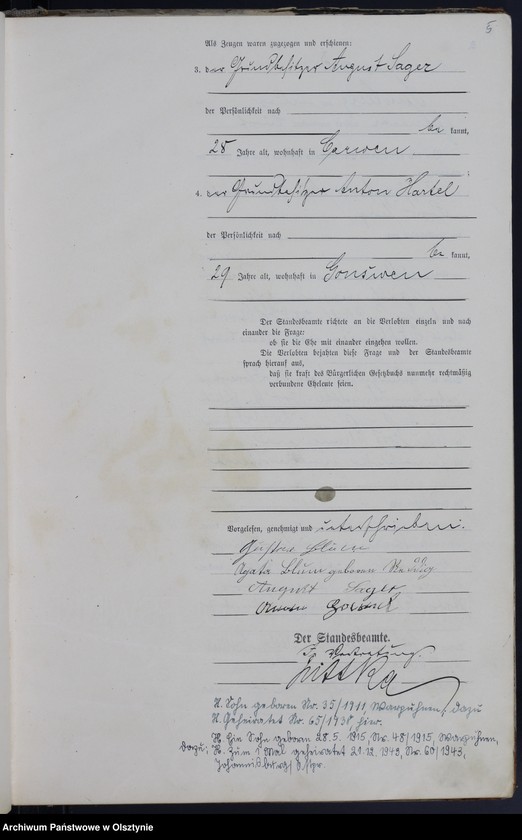 5
Als Zeugen waren zugezogen und erschienen:
3. der Grundbesitzer August Sager
der Persönlichkeit nach
be kannt,
28 Jahre alt, wohnhaft in
4. der Grundbesitzer Anton Hartel
der Persönlichkeit nach
be kannt,
29 Jahre alt, wohnhaft in Gonswen
Der Standesbeamte richtete an die Verlobten einzeln und nach
einander die Frage:
ob sie die Ehe mit einander eingehen wollen.
Die Verlobten bejahten diese Frage und der Standesbeamte
sprach hierauf aus,
daß sie kraft des Bürgerlichen Gesetzbuchs nunmehr rechtmäßig
verbundene Eheleute seien.
Vorgelesen, genehmigt und unterschrieben.
Gustav Blum
Blum geboren
August Sager
Anton
Der Standesbeamte.
In Vertretung.
Littka
H. Sohn geboren Nr. 35/1911, Warpuhnen, dazu
H. Geheiratet Nr. 65/1938, hier.
H. Ein Sohn geboren 28.5.1915, Nr. 48/1915, Warpuhnen,
Dazu: H. Zum 1 Mal geheiratet 21.12.1943, Nr. 60/1943,
Johannisburg/O./Pr.
Archiwum Państwowe w Olsztynie